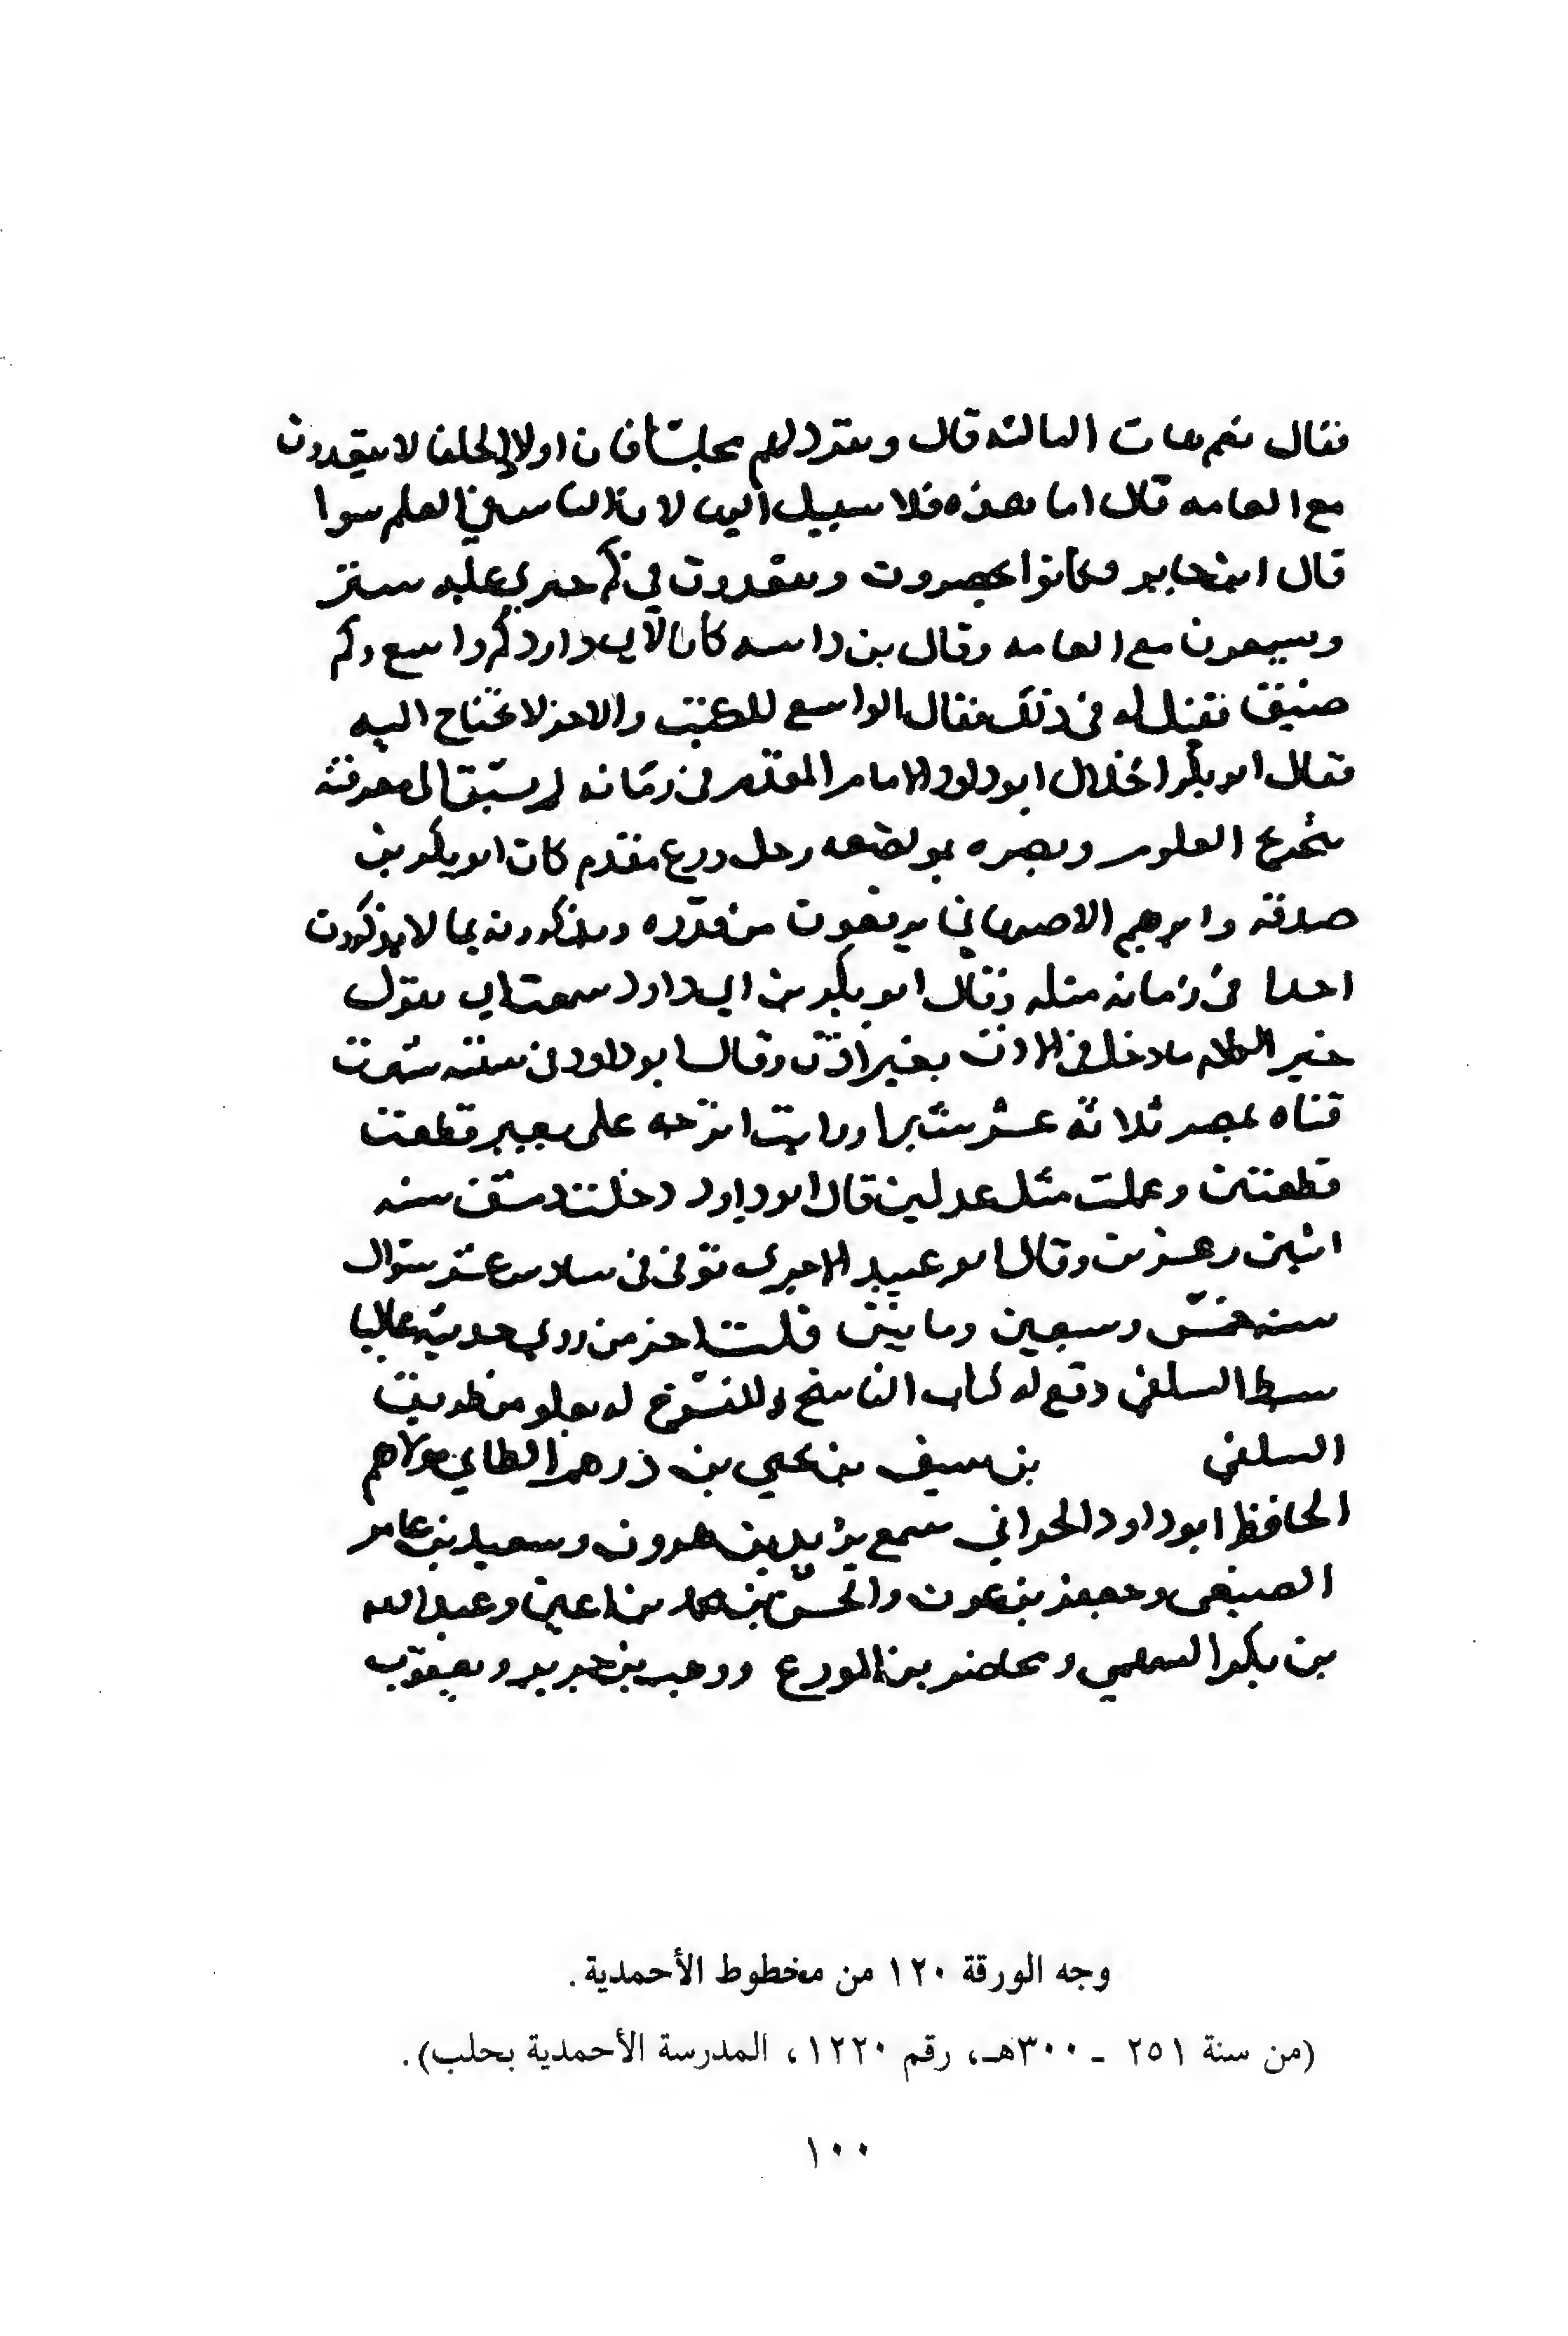 فقال نعم هات الثالثة قال وتفرد لهم مجلسا فان اولاد الخلفا لا يقعدون
مع العامه قال اما هذه فلا سبيل اليها لان الناس في العلم سوا
قال ابن جابر فكانوا يحضرون ويقعدون في كم حيري عليه ستر
ويسمعون مع العامه وقال بن داسه كان لابي داود كم واسع وكم
ضيق فقيل له في ذلك فقال الواسع للكتب والاخر لا يحتاج اليه
وقال ابو بكر الخلال ابو داود الامام المقدم في زمانه لم يسبق الى معرفته
بتخريج العلوم وبصره بمواضعه رجل ورع مقدم كان ابو بكر بن
صدقة وابرهيم الاصبهاني يرفعون من قدره ويذكرونه بما لا يذكرون
احدا في زمانه مثله وقال ابو بكر بن ابي داود سمعت ابي يقول
خير الكلام ما دخل في الاذن بغير اذن وقال ابو داود في سننه شبرت
قثاه بمصر ثلاثة عشر شبرا ورايت اترجه على بعير قطعت
قطعتين وعملت مثل عدلين قال ابو داود دخلت دمشق سنه
اثنين وعشرين وقال ابو عبيد الاجري توفي في سادس عشر شوال
سنه خمس وسبعين وماتين قلت اخر من روى حديثه عاليا
سبط السلفي وقع له كتاب الناسخ والمنسوخ له بعلو من طريق
السلفي بن سيف بن يحيي بن درهم الطاي مولاهم
الحافظ ابو داود الحراني سمع يزيد بن هرون وسعيد بن عامر
الضبعي وجعفر بن عون والحسن بن محمد بن اعين وعبد الله
بن بكر السهمي ومحاضر بن المورع ووهب بن جرير ويعقوب
وجه الورقة ١٢٠ من مخطوط الأحمدية.
(من سنة ٢٥١ ـ ٣٠٠هـ، رقم ١٢٢٠، المدرسة الأحمدية بحلب).
١٠٠